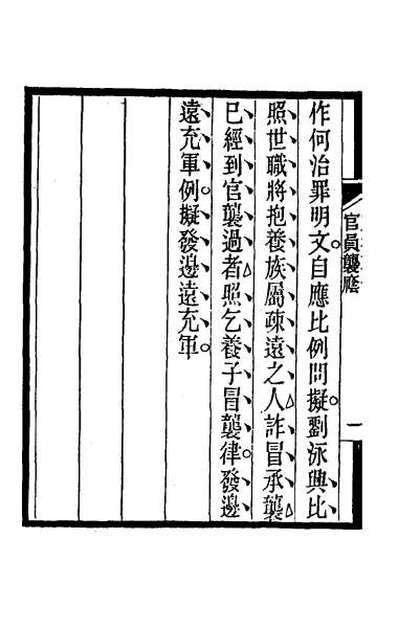 官員襲廕
一
作何治罪明文。自應比例問擬。劉泳興比
照世職將抱養族屬疎遠之人詐冒承襲
已經到官襲過者照乞養子冒襲律。發邊
遠充軍例。擬發邊遠充軍。